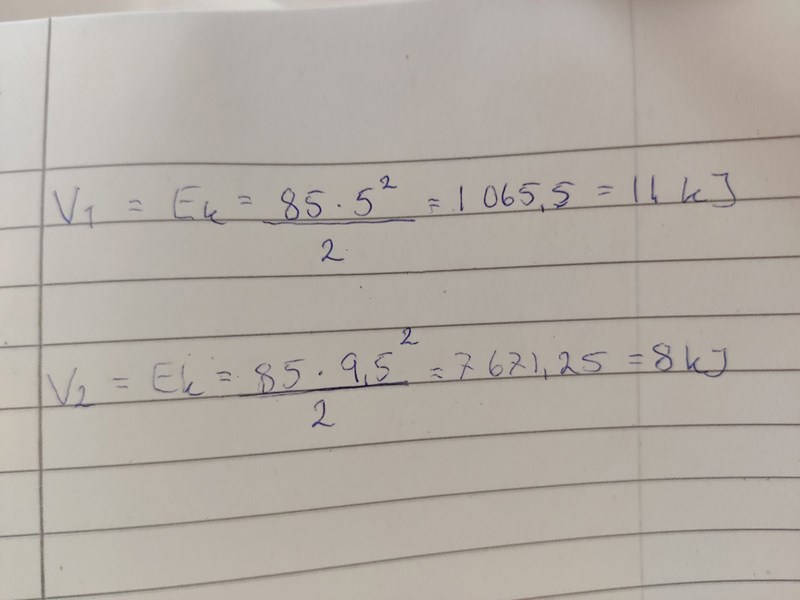 V₁ = Ek = 85 · 5² / 2 = 1 065,5 = 1,1 kJ
V₂ = Ek = 85 · 9,5² / 2 = 7 671,25 = 8 kJ